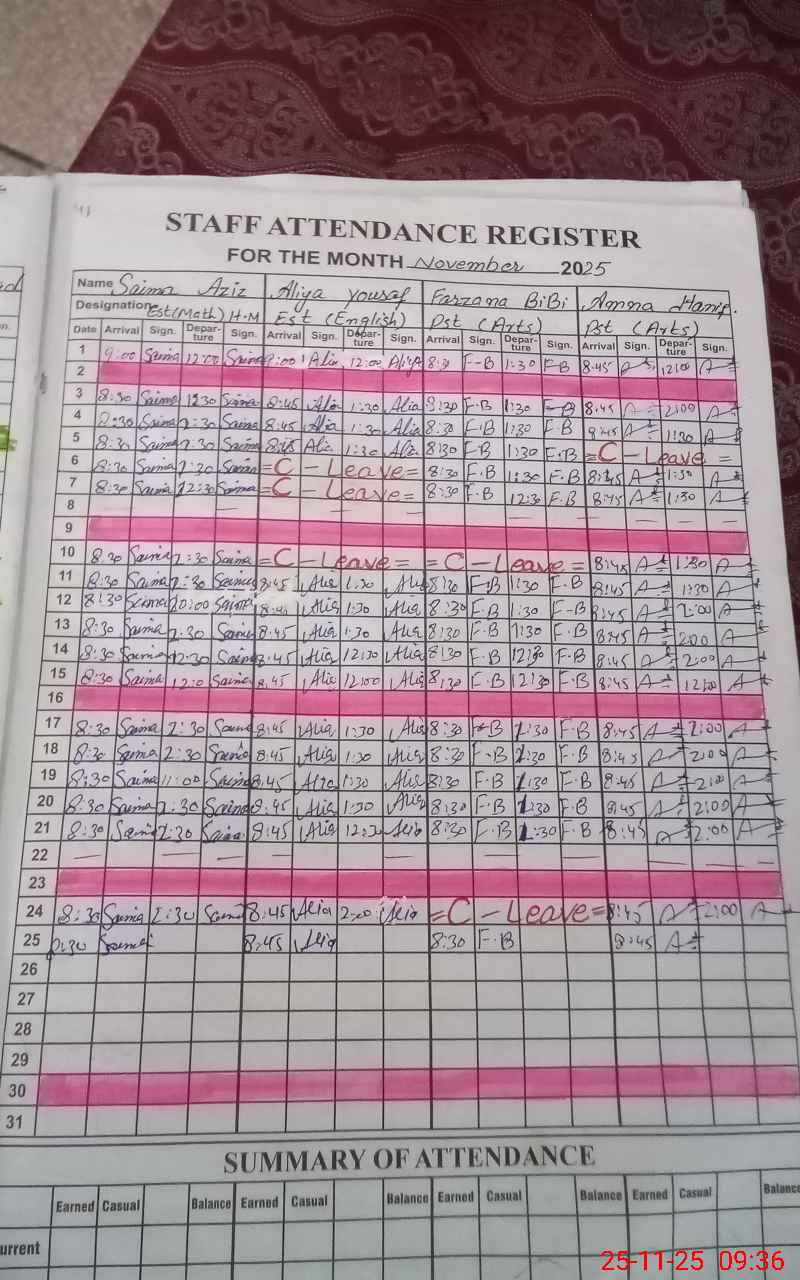 STAFF ATTENDANCE REGISTER
FOR THE MONTH November 2025
Name Saima Aziz Aliya Yousaf Farzana BiBi Amna Hanif.
Designation Est(Math) H.M Est (English) Pst (Arts) Pst (Arts)
Date Arrival Sign. Depar-ture Sign. Arrival Sign. Depar-ture Sign. Arrival Sign. Depar-ture Sign. Arrival Sign. Depar-ture Sign.
1 9:00 Saima 12:00 Saima 9:00 Alia 12:00 Aliya 8:30 F-B 1:30 FB 8:45 A 12:00 A
2
3 8:30 Saima 1:30 Saima 8:45 Alia 1:30 Alia 8:30 F.B 1:30 F-B 8:45 A 2:00 A
4 8:30 Saima 2:30 Saima 8:45 Alia 1:30 Alia 8:30 F.B 1:30 F.B A 1:30 A
5 8:30 Saima 2:30 Saima 8:45 Alia 1:30 Alia 8:30 F.B 1:30 F.B = C - Leave =
6 8:30 Saima 2:30 Saima = C - Leave = 8:30 F.B 1:30 F.B 8:45 A 1:30 A
7 8:30 Saima 12:30 Saima = C - Leave = 8:30 F.B 12:30 F.B 8:45 A 1:30 A
8 — — — — — — — —
9
10 8:30 Saima 2:30 Saima = C - Leave = = C - Leave = 8:45 A 1:30 A
11 8:30 Saima 2:30 Saima 8:45 Alia 1:30 Alia 8:30 F.B 1:30 F.B 8:45 A 1:30 A
12 8:30 Saima 10:00 Saima 8:45 Alia 1:30 Alia 8:30 F.B 1:30 F-B 8:45 A 2:00 A
13 8:30 Saima 2:30 Saima 8:45 Alia 1:30 Alia 8:30 F.B 1:30 F.B 8:45 A 2:00 A
14 8:30 Saima 12:30 Saima 8:45 Alia 12:30 Alia 8:30 F.B 12:30 F.B 8:45 A 2:00 A
15 8:30 Saima Saima 8:45 Alia 12:00 Alia 8:30 F.B 12:30 F.B 8:45 A 12:00 A
16
17 8:30 Saima 2:30 Saima 8:45 Alia 1:30 Alia 8:30 F.B 1:30 F.B 8:45 A 2:00 A
18 8:30 Saima 2:30 Saima 8:45 Alia 1:30 Alia 8:30 F.B 1:30 F.B 8:45 A 2:00 A
19 8:30 Saima 11:00 Saima 8:45 Alia 1:30 Alia 8:30 F.B 1:30 F.B 8:45 A 2:00 A
20 8:30 Saima 2:30 Saima 8:45 Alia 1:30 Alia 8:30 F.B 1:30 F.B 8:45 A 2:00 A
21 8:30 Saima 2:30 Saima 8:45 Alia 12:30 Alia 8:30 F.B 1:30 F.B 8:45 A 2:00 A
22 — — — — — — — —
23
24 8:30 Saima 2:30 Saima 8:45 Alia 2:00 Alia = C - Leave = 8:45 A 2:00 A
25 8:30 Saima 8:45 Alia 8:30 F.B 8:45 A
26
27
28
29
30
31
SUMMARY OF ATTENDANCE
Earned Casual Balance Earned Casual Balance Earned Casual Balance Earned Casual Balance
urrent
25-11-25 09:36